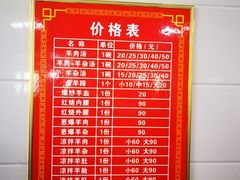 价格表
品名 单位 价格（元）
羊肉汤 1碗 20/25/30/40/50
羊肉+羊杂汤 1碗 20/25/30/40/50
羊杂汤 1碗 15/20/25/30/40
羊蹄 1个 小10/中15/大20
爆炒羊血 1份 20
红烧外腰 1份 90
红烧内腰 1份 90
红烧羊肉 1份 90
葱爆羊杂 1份 90
凉拌羊肉 1份 小60 大90
凉拌羊杂 1份 小60 大90
凉拌羊肚 1份 小60 大90
凉拌羊脸 1份 小60 大90
凉拌羊肝 1份 小60 大90